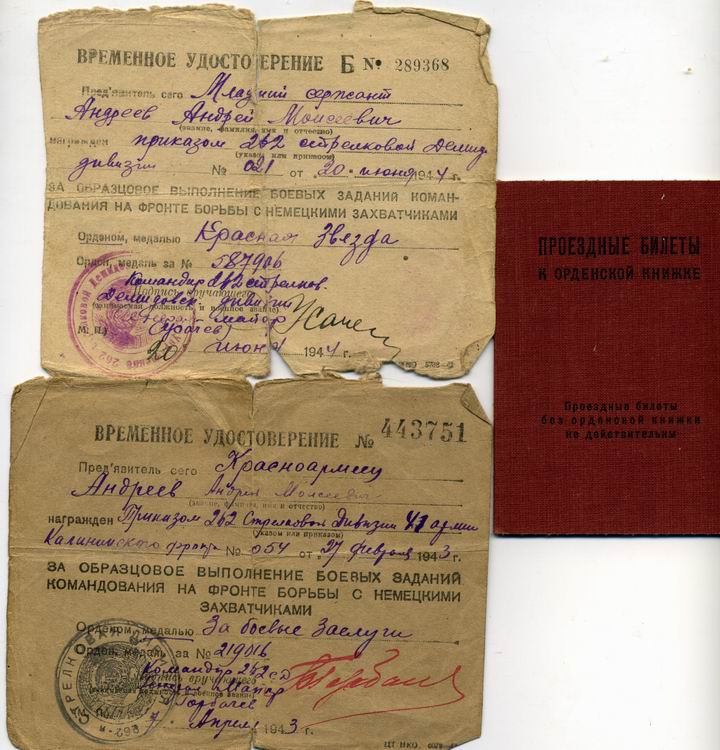 ВРЕМЕННОЕ УДОСТОВЕРЕНИЕ Б № 289368
Пред'явитель сего Младший сержант
Андреев Андрей Моисеевич
(звание, фамилия, имя и отчество)
награжден приказом 262 стрелковой Демид.
(указом или приказом)
дивизии № 021 от 20 июня 1944 г.
ЗА ОБРАЗЦОВОЕ ВЫПОЛНЕНИЕ БОЕВЫХ ЗАДАНИЙ КОМАН-
ДОВАНИЯ НА ФРОНТЕ БОРЬБЫ С НЕМЕЦКИМИ ЗАХВАТЧИКАМИ
Орденом, медалью Красная Звезда
Орден, медаль за № 587906
Командир 262 стрелков.
Подпись вручающего
Демидовск. дивизии
майор
М. П.
20 июня 1944 г.
ВРЕМЕННОЕ УДОСТОВЕРЕНИЕ № 443751
Пред'явитель сего Красноармеец
Андреев Андрей Моисеевич
(звание, фамилия, имя и отчество)
награжден Приказом 262 Стрелковой Дивизии 41 армии
(указом или приказом)
Калининского фронта № 054 от 27 февраля 1943 г.
ЗА ОБРАЗЦОВОЕ ВЫПОЛНЕНИЕ БОЕВЫХ ЗАДАНИЙ
КОМАНДОВАНИЯ НА ФРОНТЕ БОРЬБЫ С НЕМЕЦКИМИ
ЗАХВАТЧИКАМИ
Орденом, медалью За боевые Заслуги
Орден, медаль за № 219016
Командир 262 сд
Подпись вручающего
Майор
Горбачев
7 Апреля 1943 г.
ПРОЕЗДНЫЕ БИЛЕТЫ
К ОРДЕНСКОЙ КНИЖКЕ
Проездные билеты
без орденской книжки
не действительны